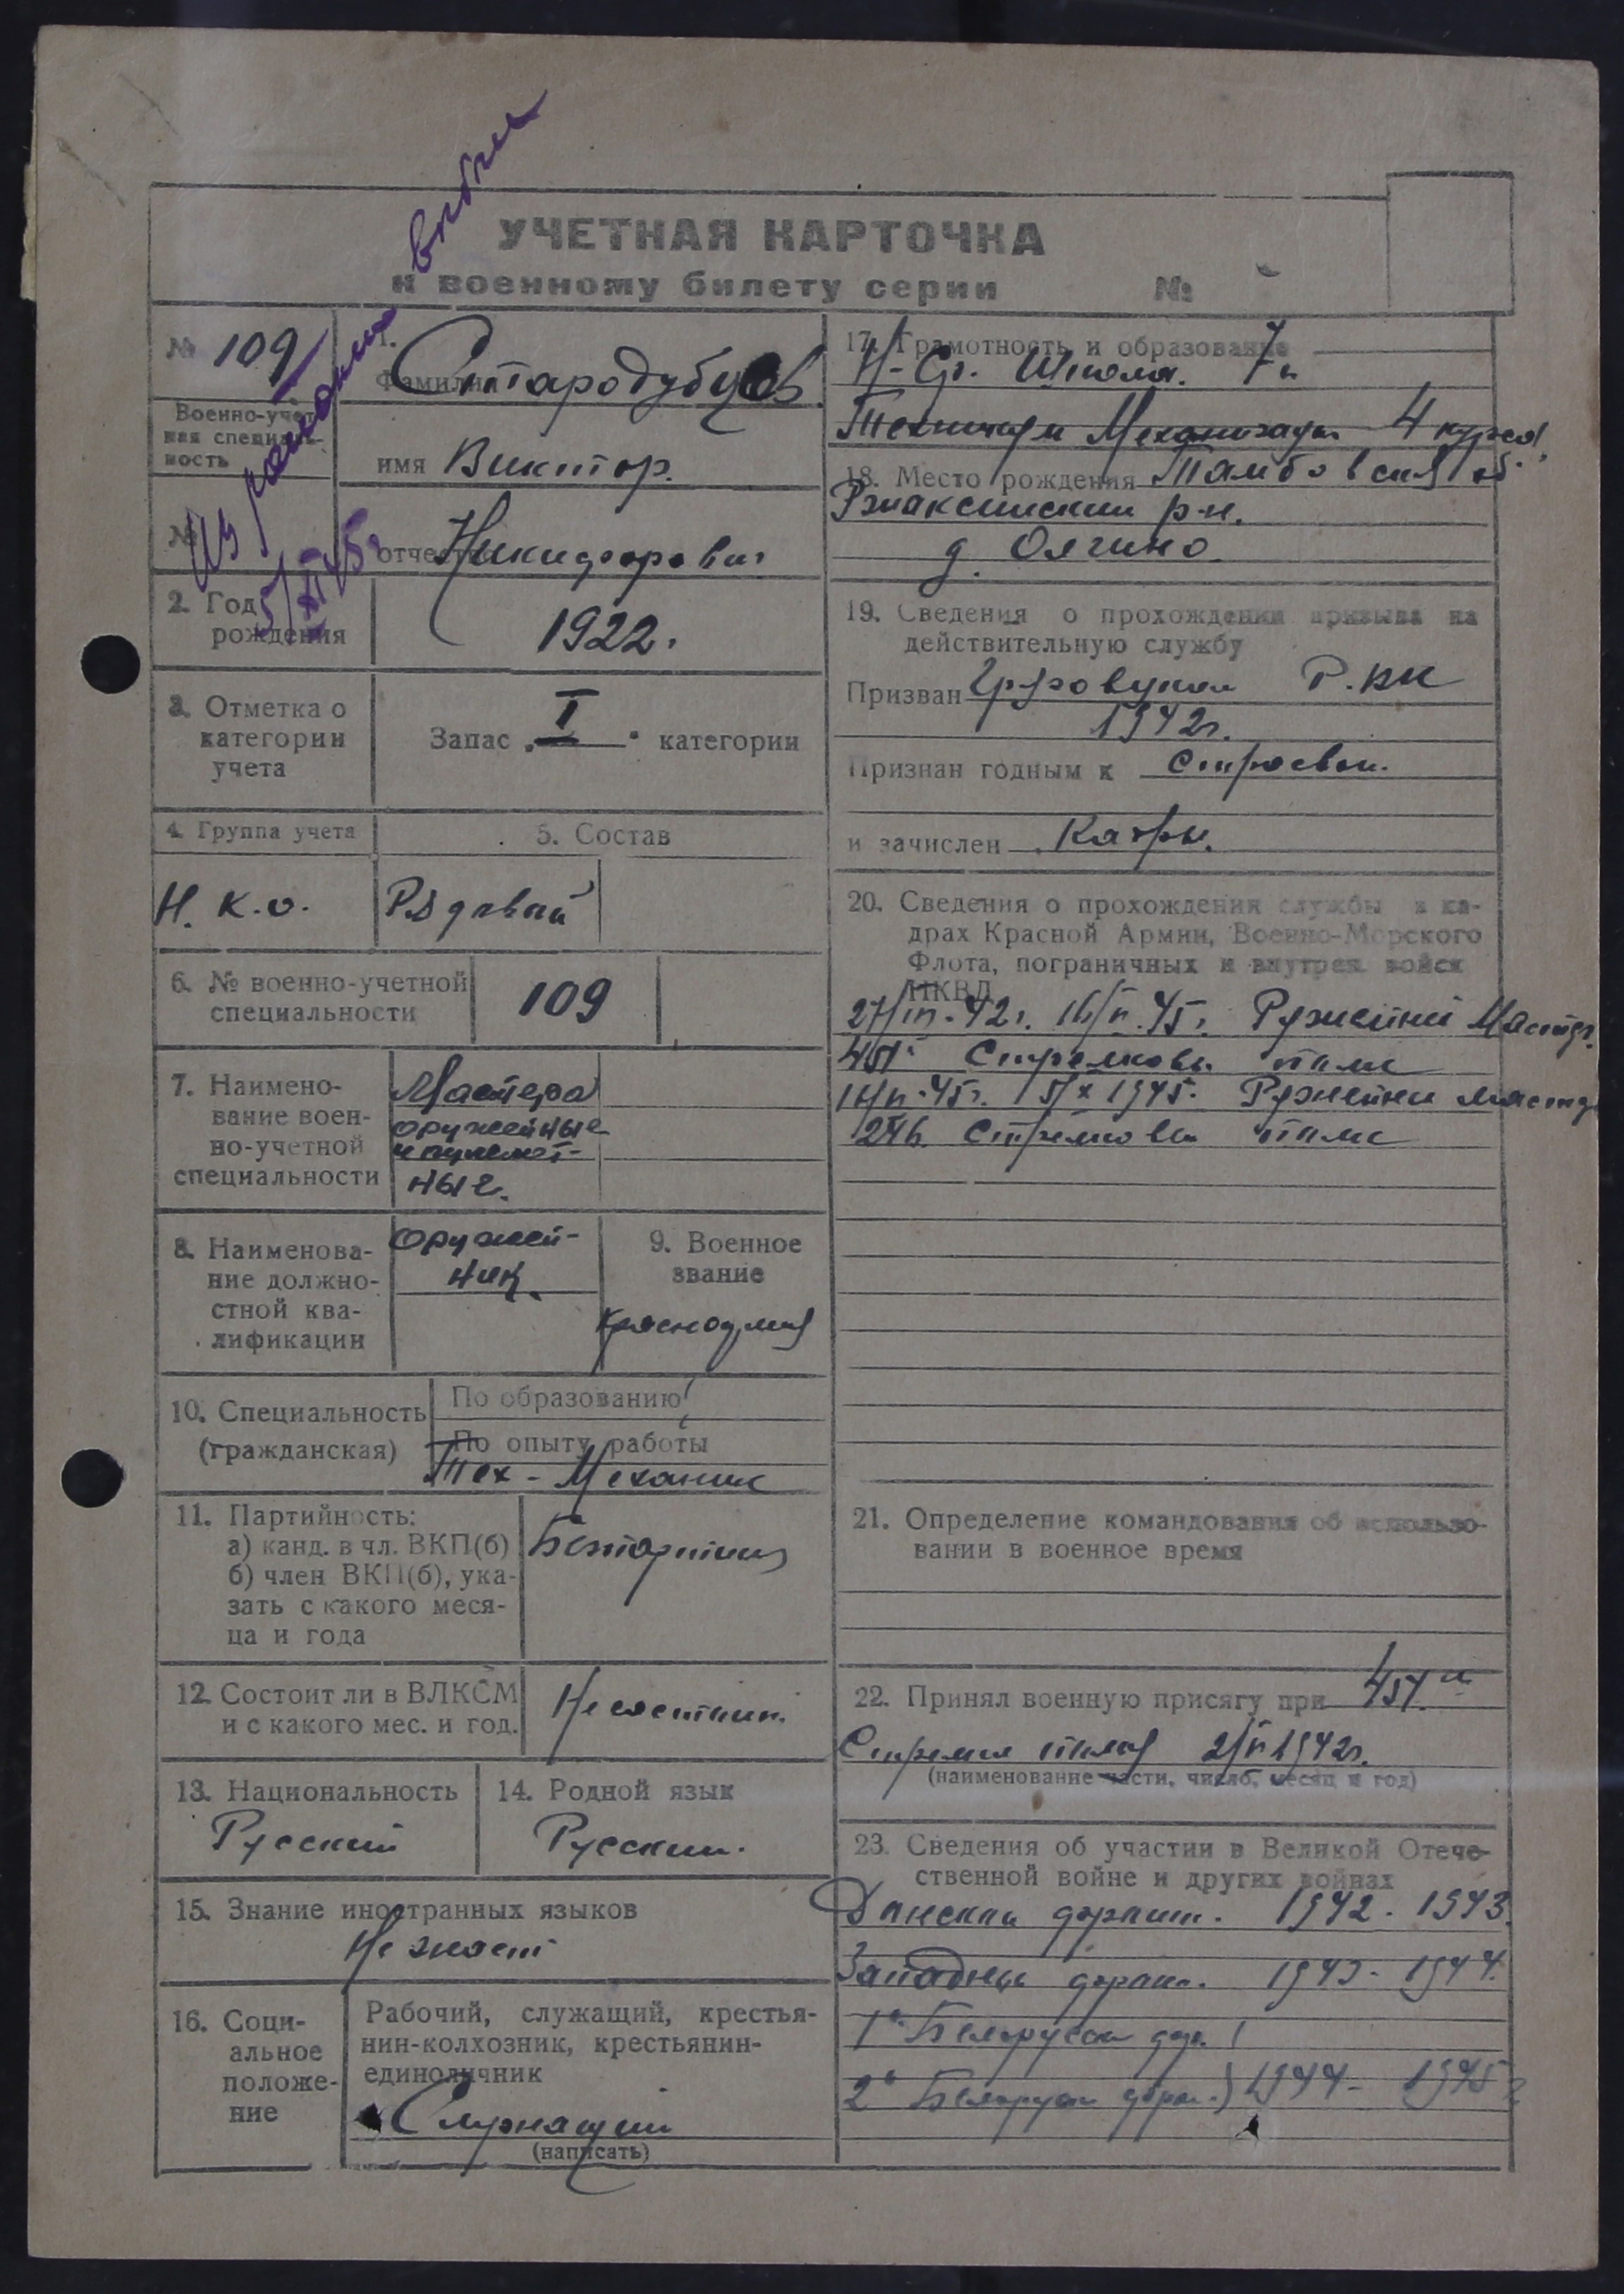 выбыл
из района
5/XI 45г
УЧЕТНАЯ КАРТОЧКА
к военному билету серии №
№ 109
Военно-учет-
ная специаль-
ность
№
1.
Фамилия Стародубцев
имя Виктор.
отчество Никифорович
2. Год
рождения
1922.
3. Отметка о
категории
учета
Запас „I" категории
4. Группа учета
5. Состав
Н. К. О.
Рядовый
6. № военно-учетной
специальности
109
7. Наимено-
вание воен-
но-учетной
специальности
Мастера
оружейные
и пулемет-
ные.
8. Наименова-
ние должно-
стной ква-
лификации
Оружей-
ник.
9. Военное
звание
Красноармеец
10. Специальность
(гражданская)
По образованию
По опыту работы
Тех-Механик
11. Партийность:
а) канд. в чл. ВКП(б)
б) член ВКП(б), ука-
зать с какого меся-
ца и года
Безпартийный
12. Состоит ли в ВЛКСМ
и с какого мес. и год.
Не состоит
13. Национальность
Русский
14. Родной язык
Русский.
15. Знание иностранных языков
Не знает
16. Соци-
альное
положе-
ние
Рабочий, служащий, крестья-
нин-колхозник, крестьянин-
единоличник
Служащий
(написать)
17. Грамотность и образование
Н-Ср. Школа. 7 к
Техникум Механизации 4 курса
18. Место рождения Тамбовская об.
Ржаксинский р-н.
д. Олгино
19. Сведения о прохождении призыва на
действительную службу
Призван Р.ВК
1942г.
Признан годным к строевой.
и зачислен Кадры.
20. Сведения о прохождении службы в ка-
драх Красной Армии, Военно-Морского
Флота, пограничных и внутрен. войск
НКВД
Ружейный Мастер.
Стрелковый полк
Ружейный мастер
Стрелковый полк
21. Определение командования об использо-
вании в военное время
22. Принял военную присягу при
1942г.
(наименование части, число, месяц и год)
23. Сведения об участии в Великой Отече-
ственной войне и других войнах
Донской фронт. 1942-1943.
Западный фронт. 1943-1944.
1й Белорусск фр.
2й Белорусск фрон. } 1944-1945г